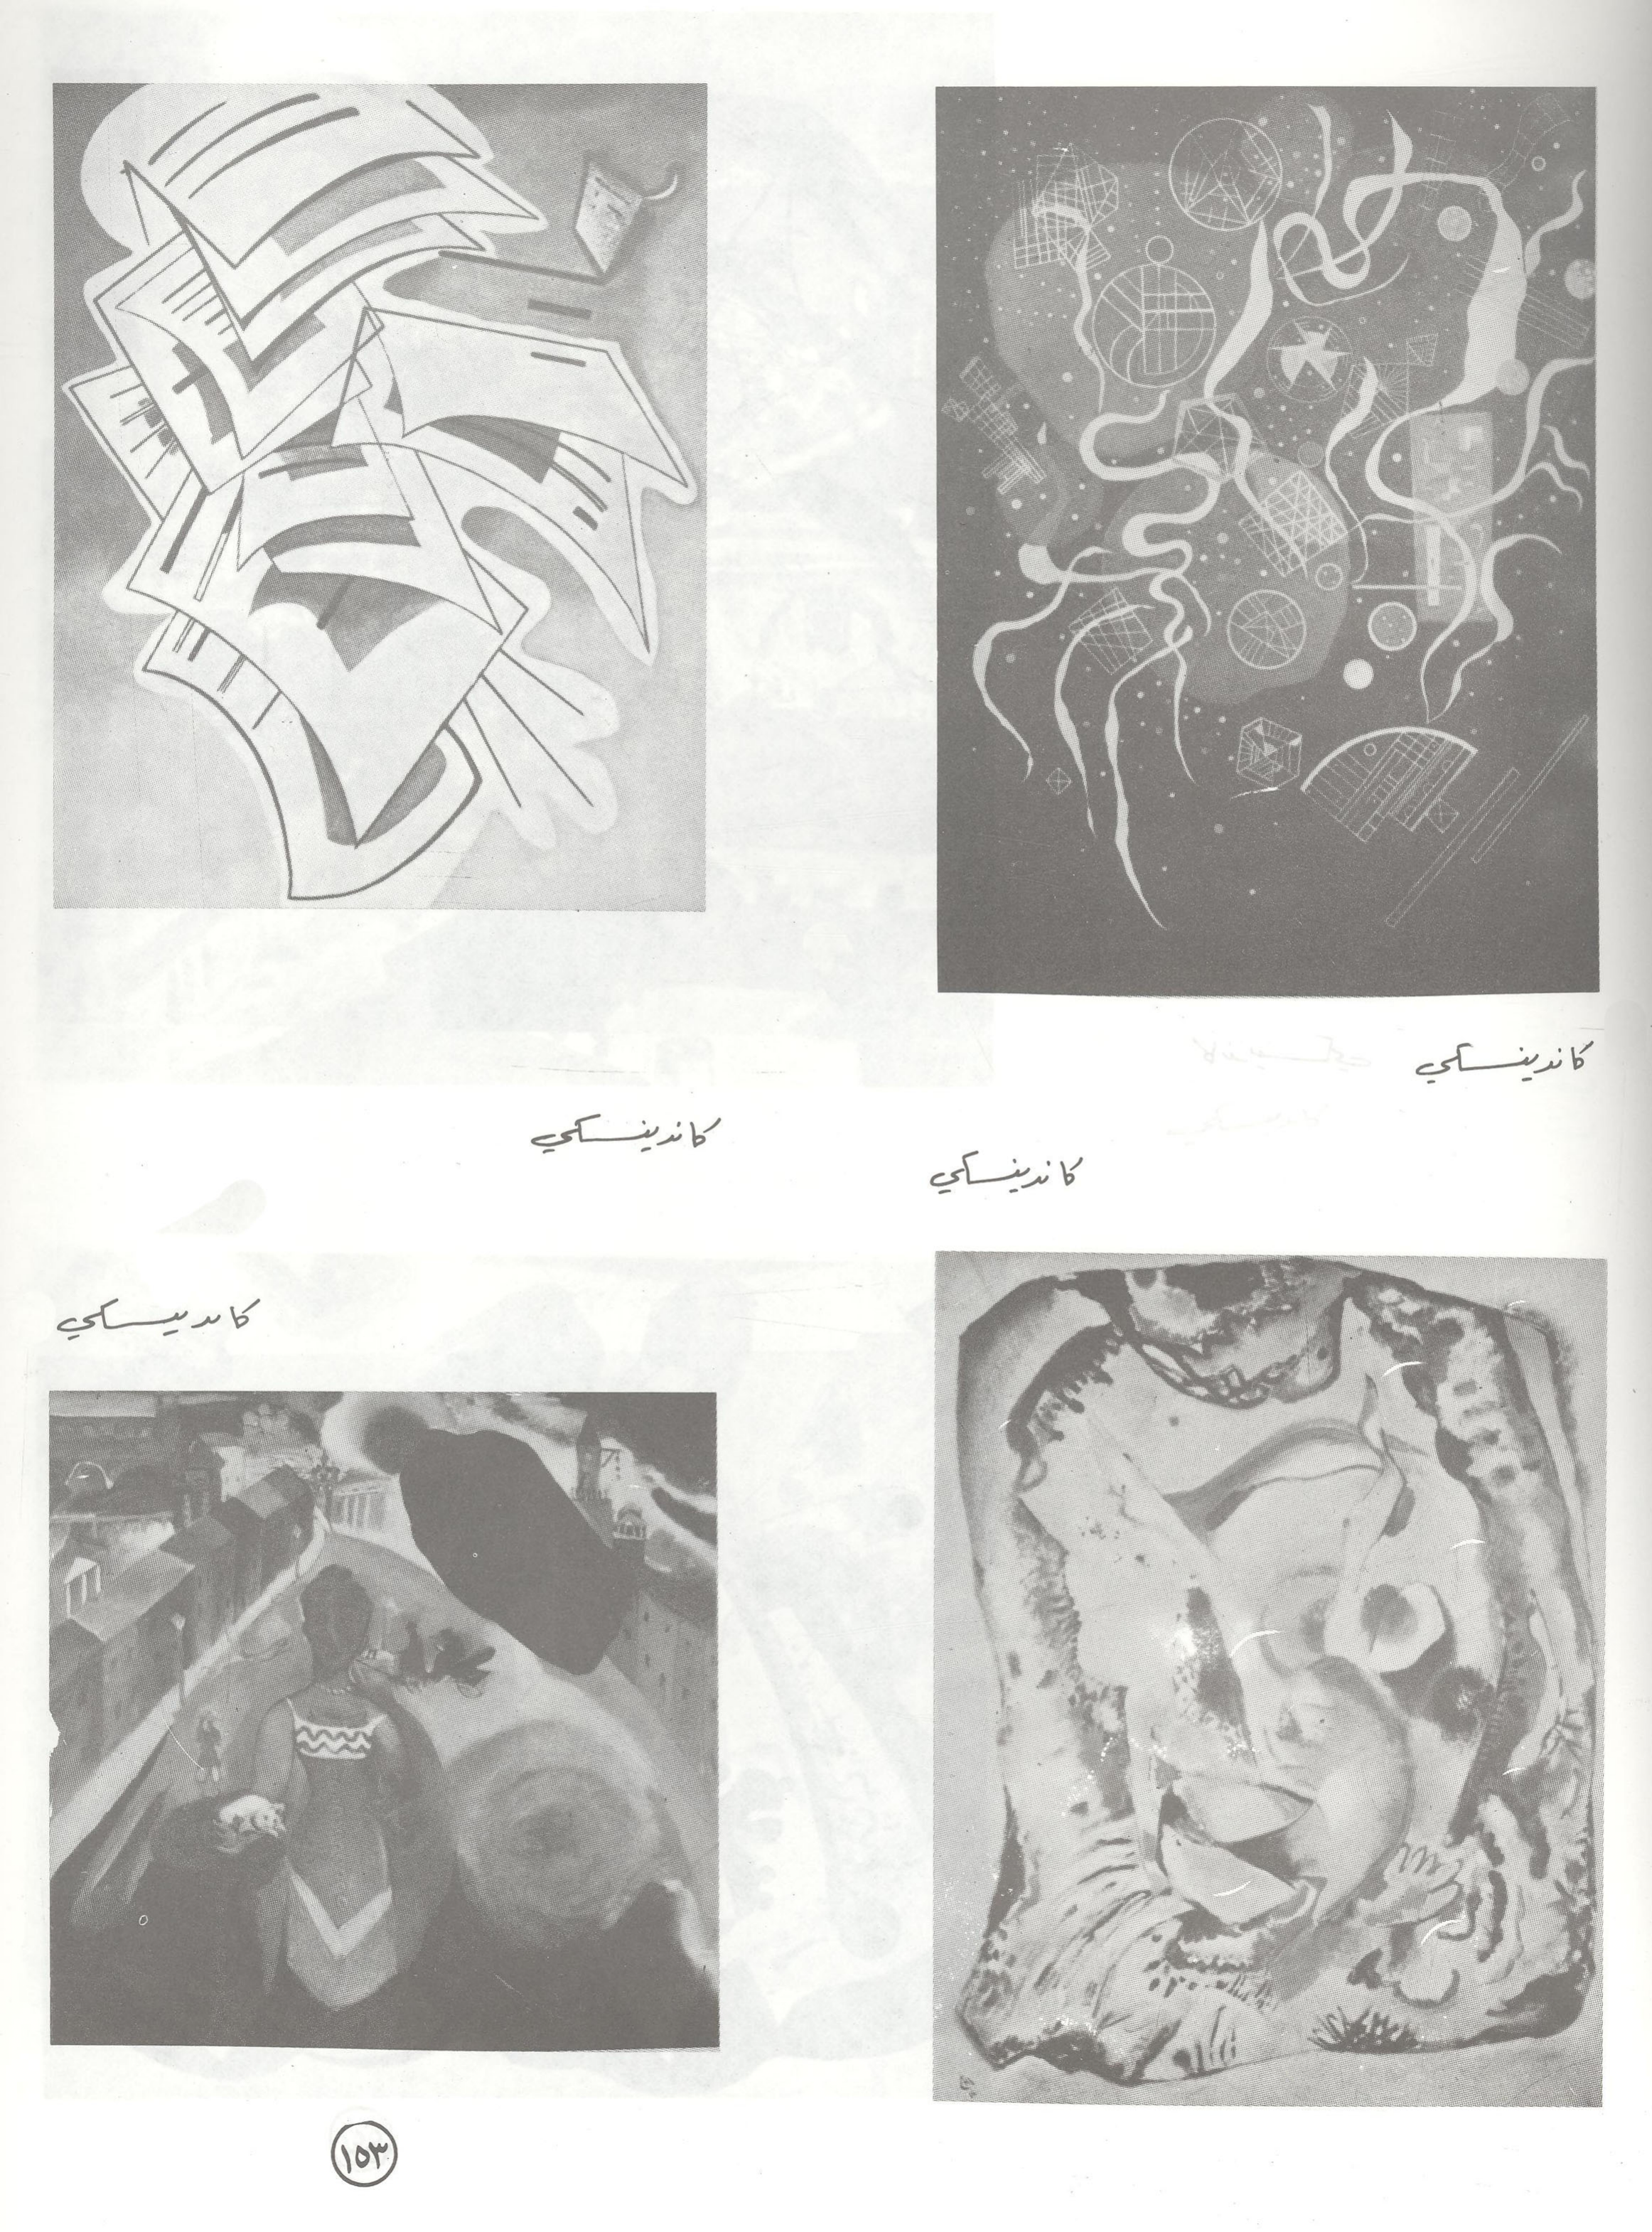 كاندينسكي
كاندينسكي
كاندينسكي
كاندينسكي
١٥٣